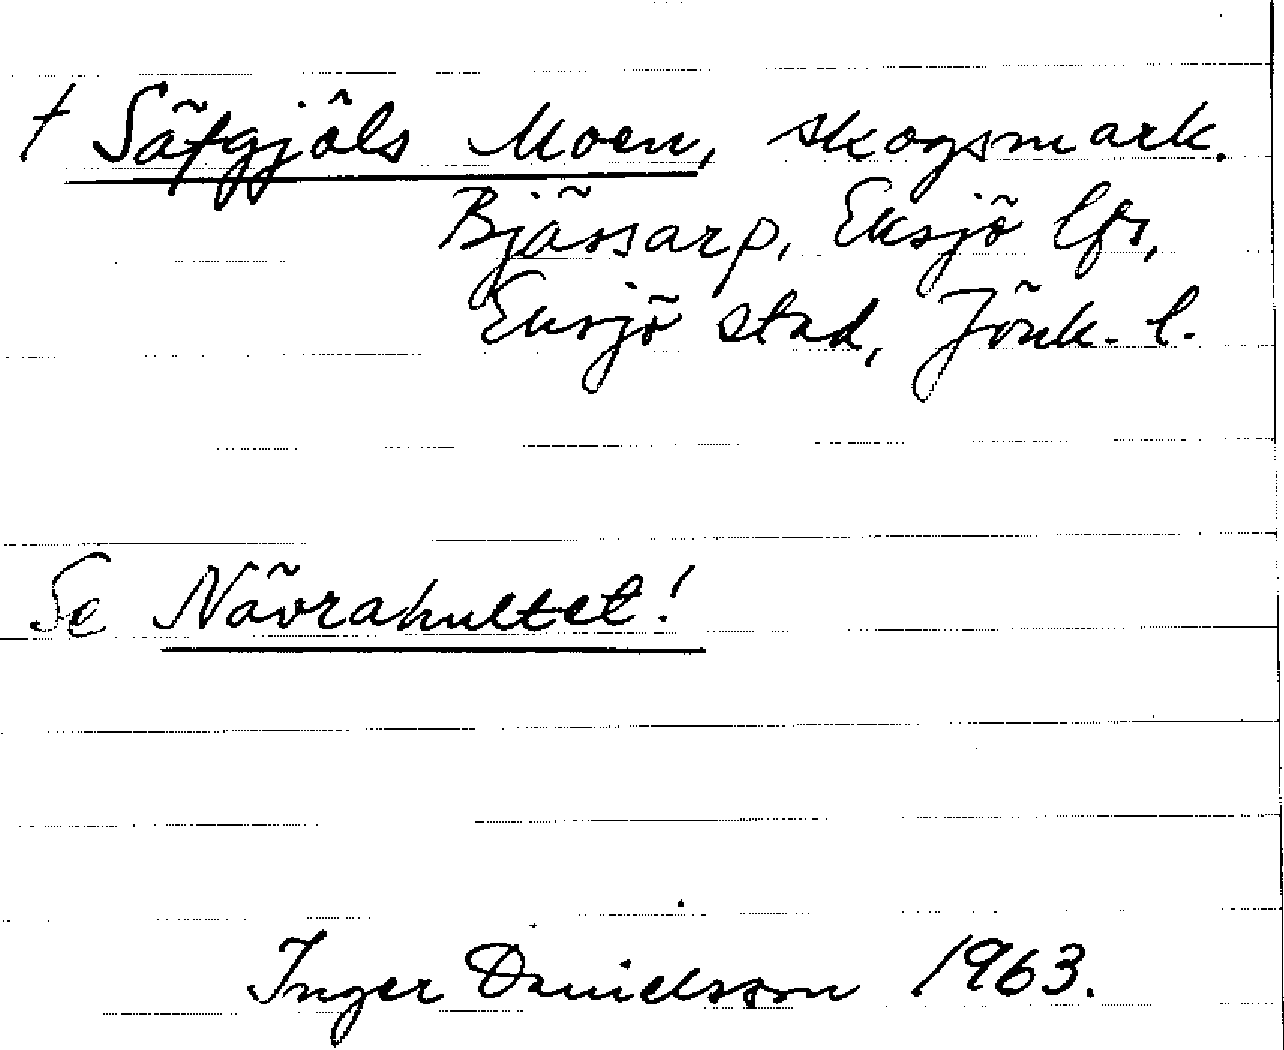 † Säfgjöls Moen, skogsmark.
Bjässarp, Eksjö lfs,
Eksjö stad, Jönk. l.
Se Nävrahultet!
Inger Danielsson 1963.